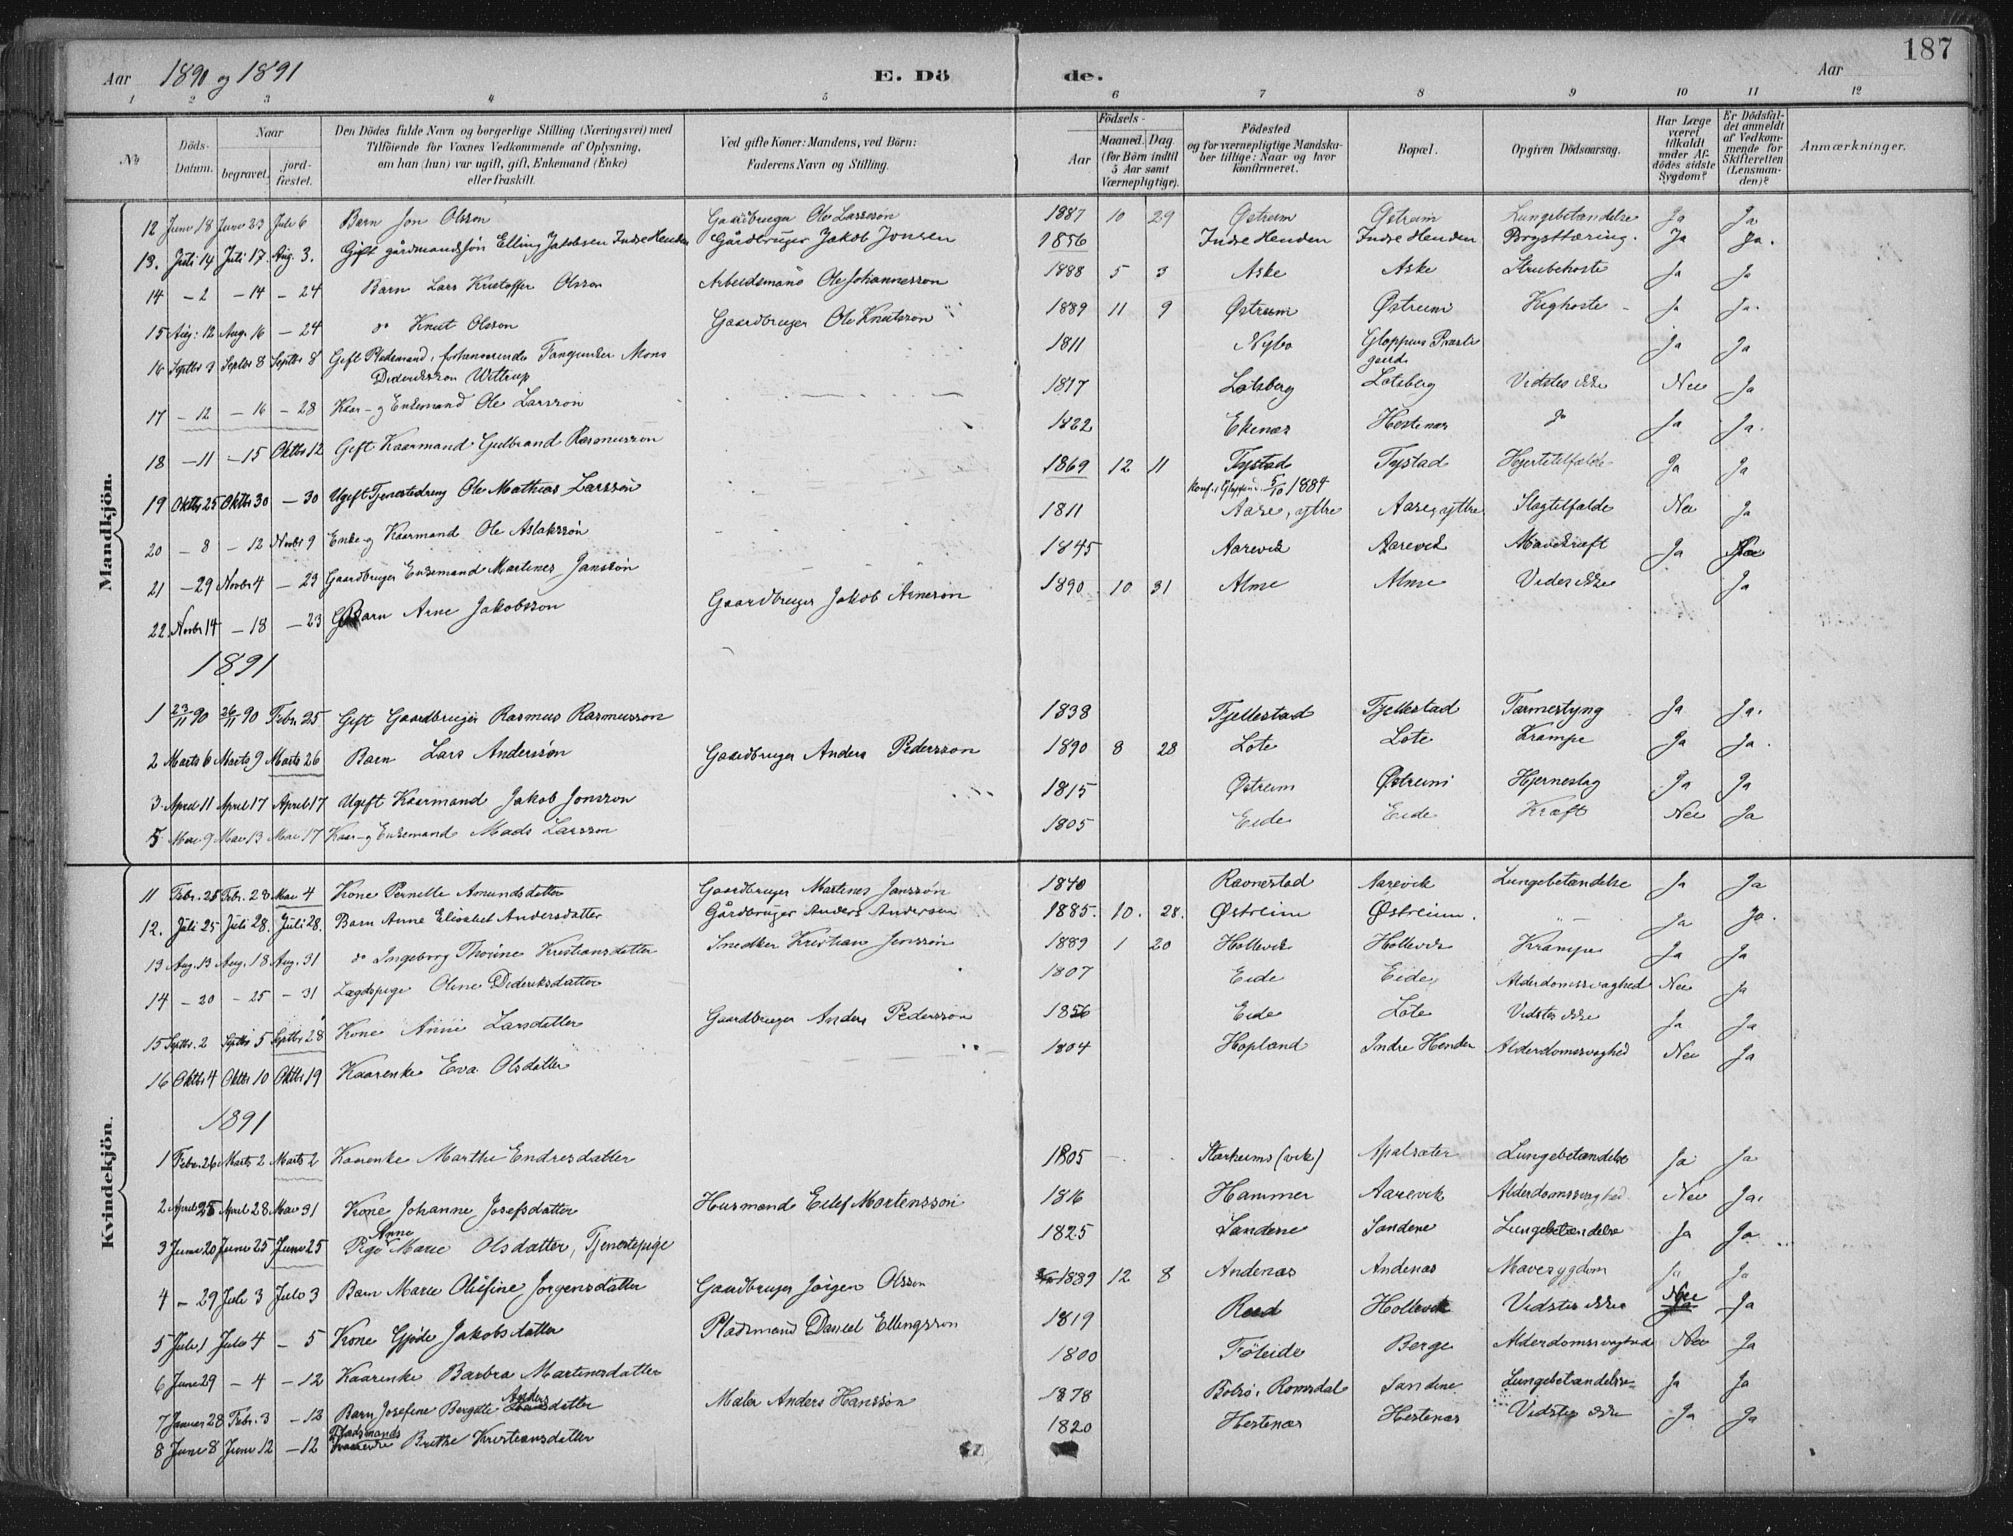 187
Aar 1890 og 1891 E. Döde. Aar
1 2 3 4 5 6 7 8 9 10 11 12
No
Döds-Datum.
Naar
begravet.
jordfæstet.
Den Dödes fulde Navn og borgerlige Stilling (Næringsvei) med
Tilföiende for Voxnes Vedkommende af Oplysning,
om han (hun) var ugift, gift, Enkemand (Enke)
eller fraskilt.
Ved gifte Koner: Mandens, ved Börn:
Faderens Navn og Stilling.
Födsels-
Aar
Maaned. Dag
(for Börn indtil
5 Aar samt
Værnepligtige).
Födested
og for værnepligtige Mandskaber tillige: Naar og hvor
konfirmeret.
Bopæl.
Opgiven Dödsaarsag.
Har Læge
været
tilkaldt
under Afdödes sidste
Sygdom?
Er Dödsfaldet anmeldt
af Vedkommende for
Skifteretten
(Lensmanden)?
Anmærkninger.
Mandkjön.
12 Juni 18 Juni 23 Juli 6 Barn Jon Olsson Gaardbruger Ole Larsson 1887 10 29 Østreim Østreim Lungebetændelse Ja Ja
13. Juli 14 Juli 17. Aug. 3. Gift gårdmandssøn Elling Jakobsen Indre Henden Gårdbruger Jakob Jonsen 1856 Indre Henden Indre Henden Brysttæring. Ja Ja.
14 – 2 – 14 – 24 Barn Lars Kristoffer Olsson Arbeidsmand Ole Johannesson 1888 5 3 Aske Aske Strubehoste Ja Ja
15 Aug. 12 Aug. 16 – 24 do Knut Olsson Gaardbruger Ole Knutsson 1889 11 9 Østreim Østreim Kighoste Ja Ja.
16 Septbr 3 Septbr 8 Septbr 8 Gift Pladsmand, forhenværende Mons 1811 Nybø Gloppens Præstegaard Ja Ja
Wittrup
17 – 12 – 16 – 28 Kaar- og Enkemand Ole Larsson 1817 Lotsberg Lotsberg Vidstes ikke Nei Ja
18 – 11 – 15 Oktbr 12 Gift Kaarmand Gulbrand Rasmusson 1822 Ekenæs Hestenæs do Ja Ja.
19 Oktbr 25 Oktbr 30 – 30 Ugift Tjenestedreng Ole Mathias Larsson 1869 12 11 Tystad Tystad Hjertetilfælde Ja Ja
Konf. i Gloppen 5/10 1884
20 – 8 – 12 Novbr 9 Enke- og Kaarmand Ole Aslaksson 1811 Aare, ytre Aare, ytre Slagtilfælde Nei Ja
21 – 29 Novbr 4 – 23 Gaardbruger Enkemand Martines Jansson 1845 Aarevik Aarevik Mavekræft Ja
22 Novbr 14 – 18 – 23 Barn Arne Jakobsson Gaardbruger Jakob Arneson 1890 10 31 Alme Alme Vides ikke Ja
1891
1 23/11 90 26/11 90 Febr. 25 Gift Gaardbruger Rasmus Rasmusson 1838 Fjellestad Fjellestad Tarmeslyng Ja Ja.
2 Marts 6 Marts 9 Marts 26 Barn Lars Andersson Gaardbruger Anders Pedersson 1890 8 28 Lote Lote Krampe Ja Ja.
3 April 11 April 17 April 17 Ugift Kaarmand Jakob Jonsson 1815 Østreim Østreim Hjerneslag Ja Ja
5 Mai 9 Mai 13 Mai 17 Kaar- og Enkemand Mads Larsson 1805 Eide Eide Kræft Nei Ja
Kvindekjön.
11 Febr. 25 Febr. 28 Mai 4 Kone Pernille Amundsdatter Gaardbruger Martines Jansson 1840 Ravnestad Aarevik Lungebetændelse Ja Ja
12. Juli 25 Juli 28. Juli 28. Barn Anne Elisabet Andersdatter Gårdbruger Anders Andersen 1885. 10. 28. Østreim Østreim. – " – Ja Ja.
13 Aug. 13 Aug. 18 Aug. 31 do Ingeborg Thorine Kristiansdatter Snedker Kristian Jonsson 1889 1 20 Hollevik Hollevik Krampe Ja Ja
14 – 20 – 25 – 31 Lægdspige Oline Dideriksdatter 1807 Eide Eide, Alderdomssvaghed Nei Ja
15 Septbr. 2 Septbr 5 Septbr 28 Kone Anne Larsdatter Gaardbruger Anders Pedersson 1856 Eide Lote Vidstes ikke Ja Ja
16 Oktbr 4 Oktbr 10 Oktbr 19 Kaarenke Eva Olsdatter 1804 Hopland Indre Henden Alderdomssvaghed Nei Ja
1891
1 Febr. 26 Marts 2 Marts 2 Kaarenke Marthe Endresdatter 1805 Starheims (vik) Apalsæter Lungebetændelse Ja Ja
2 April 25 April 28 Mai 31 Kone Johanne Josefsdatter Husmand Eilef Martensson 1816 Hammer Aarevik Alderdomssvaghed Nei Ja.
3 Juni 20 Juni 25 Juni 25 Pige Anne Marie Olsdatter, Tjenestepige 1825 Sandene Sandene Lungebetændelse Ja Ja
4 – 29 Juli 3 Juli 3 Barn Marie Olufine Jørgensdatter Gaardbruger Jørgen Olsson 1889 12 8 Andenæs Andenæs Mavesygdom Ja Ja
5 Juli 1 Juli 4 – 5 Kone Gjøde Jakobsdatter Pladsmand Daniel Ellingsson 1819 Reed Hollevik Vidstes ikke Nei Ja
6 Juni 29 – 4 – 12 Kaarenke Barbra Martinesdatter 1800 Føleide Berge Alderdomssvaghed Nei Ja
7 Januar 28 Febr. 3 – 12 Barn Josefine Bergitte Andersdatter Maler Anders Hansson 1878 Bolsø i Romsdal Sandene Lungebetændelse Ja Ja
8 Juni 8 Juni 12 – 12 Pladsmands Brithe Kristiansdatter 1820 Hestenæs Hestenæs Vidstes ikke Ja Ja